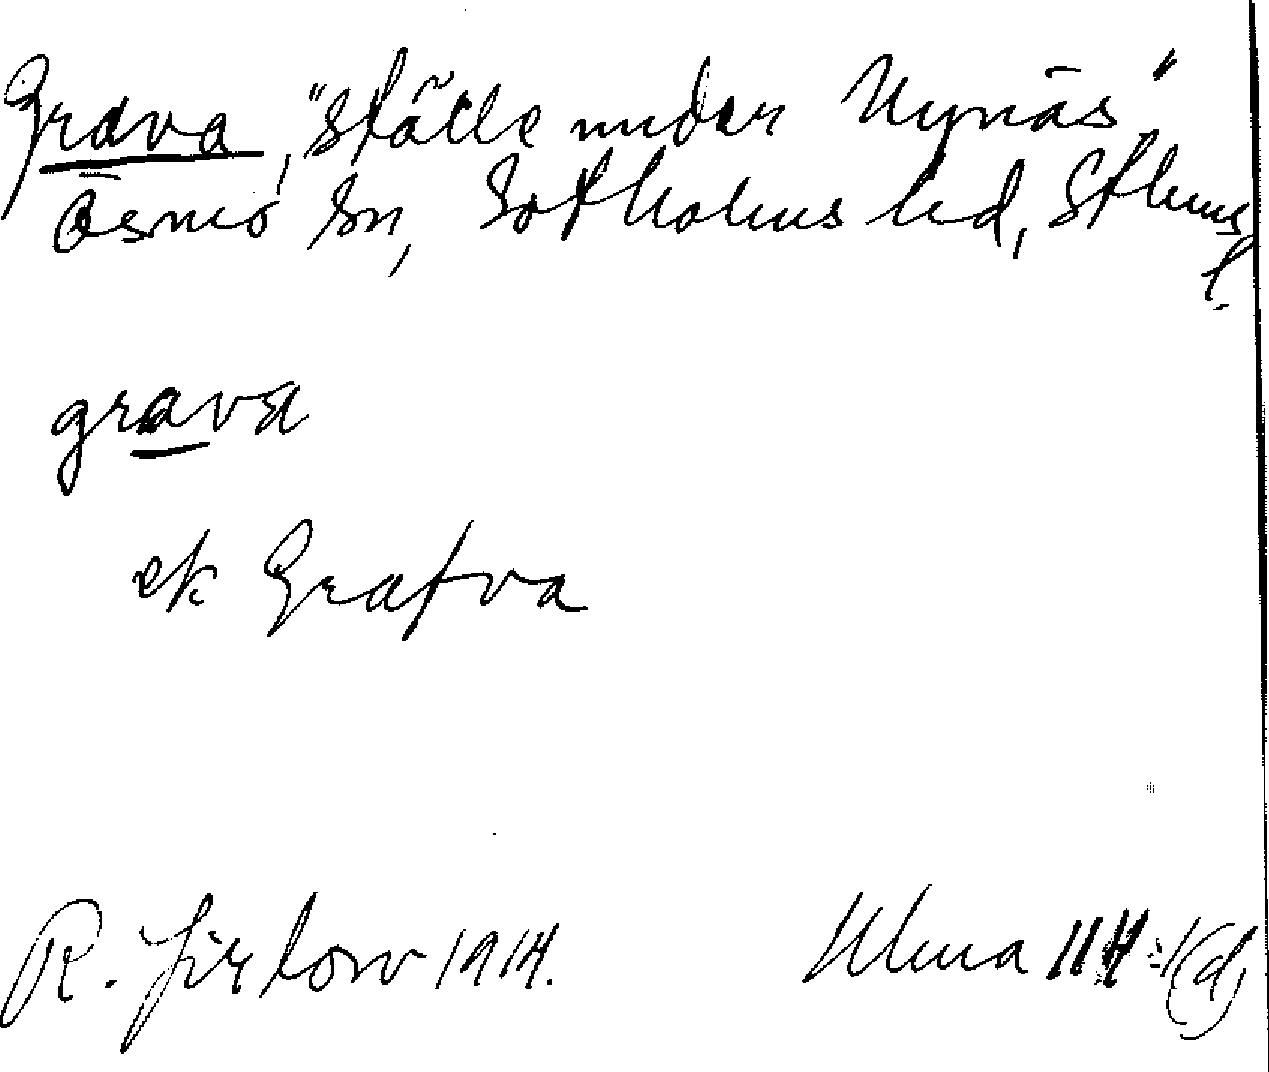 Grava, "ställe under Nynäs"
Ösmo sn, Sotholms hd, Sthms
l.
grava
ek Grafva
R. Jirlow 1914.
Ulma 114: